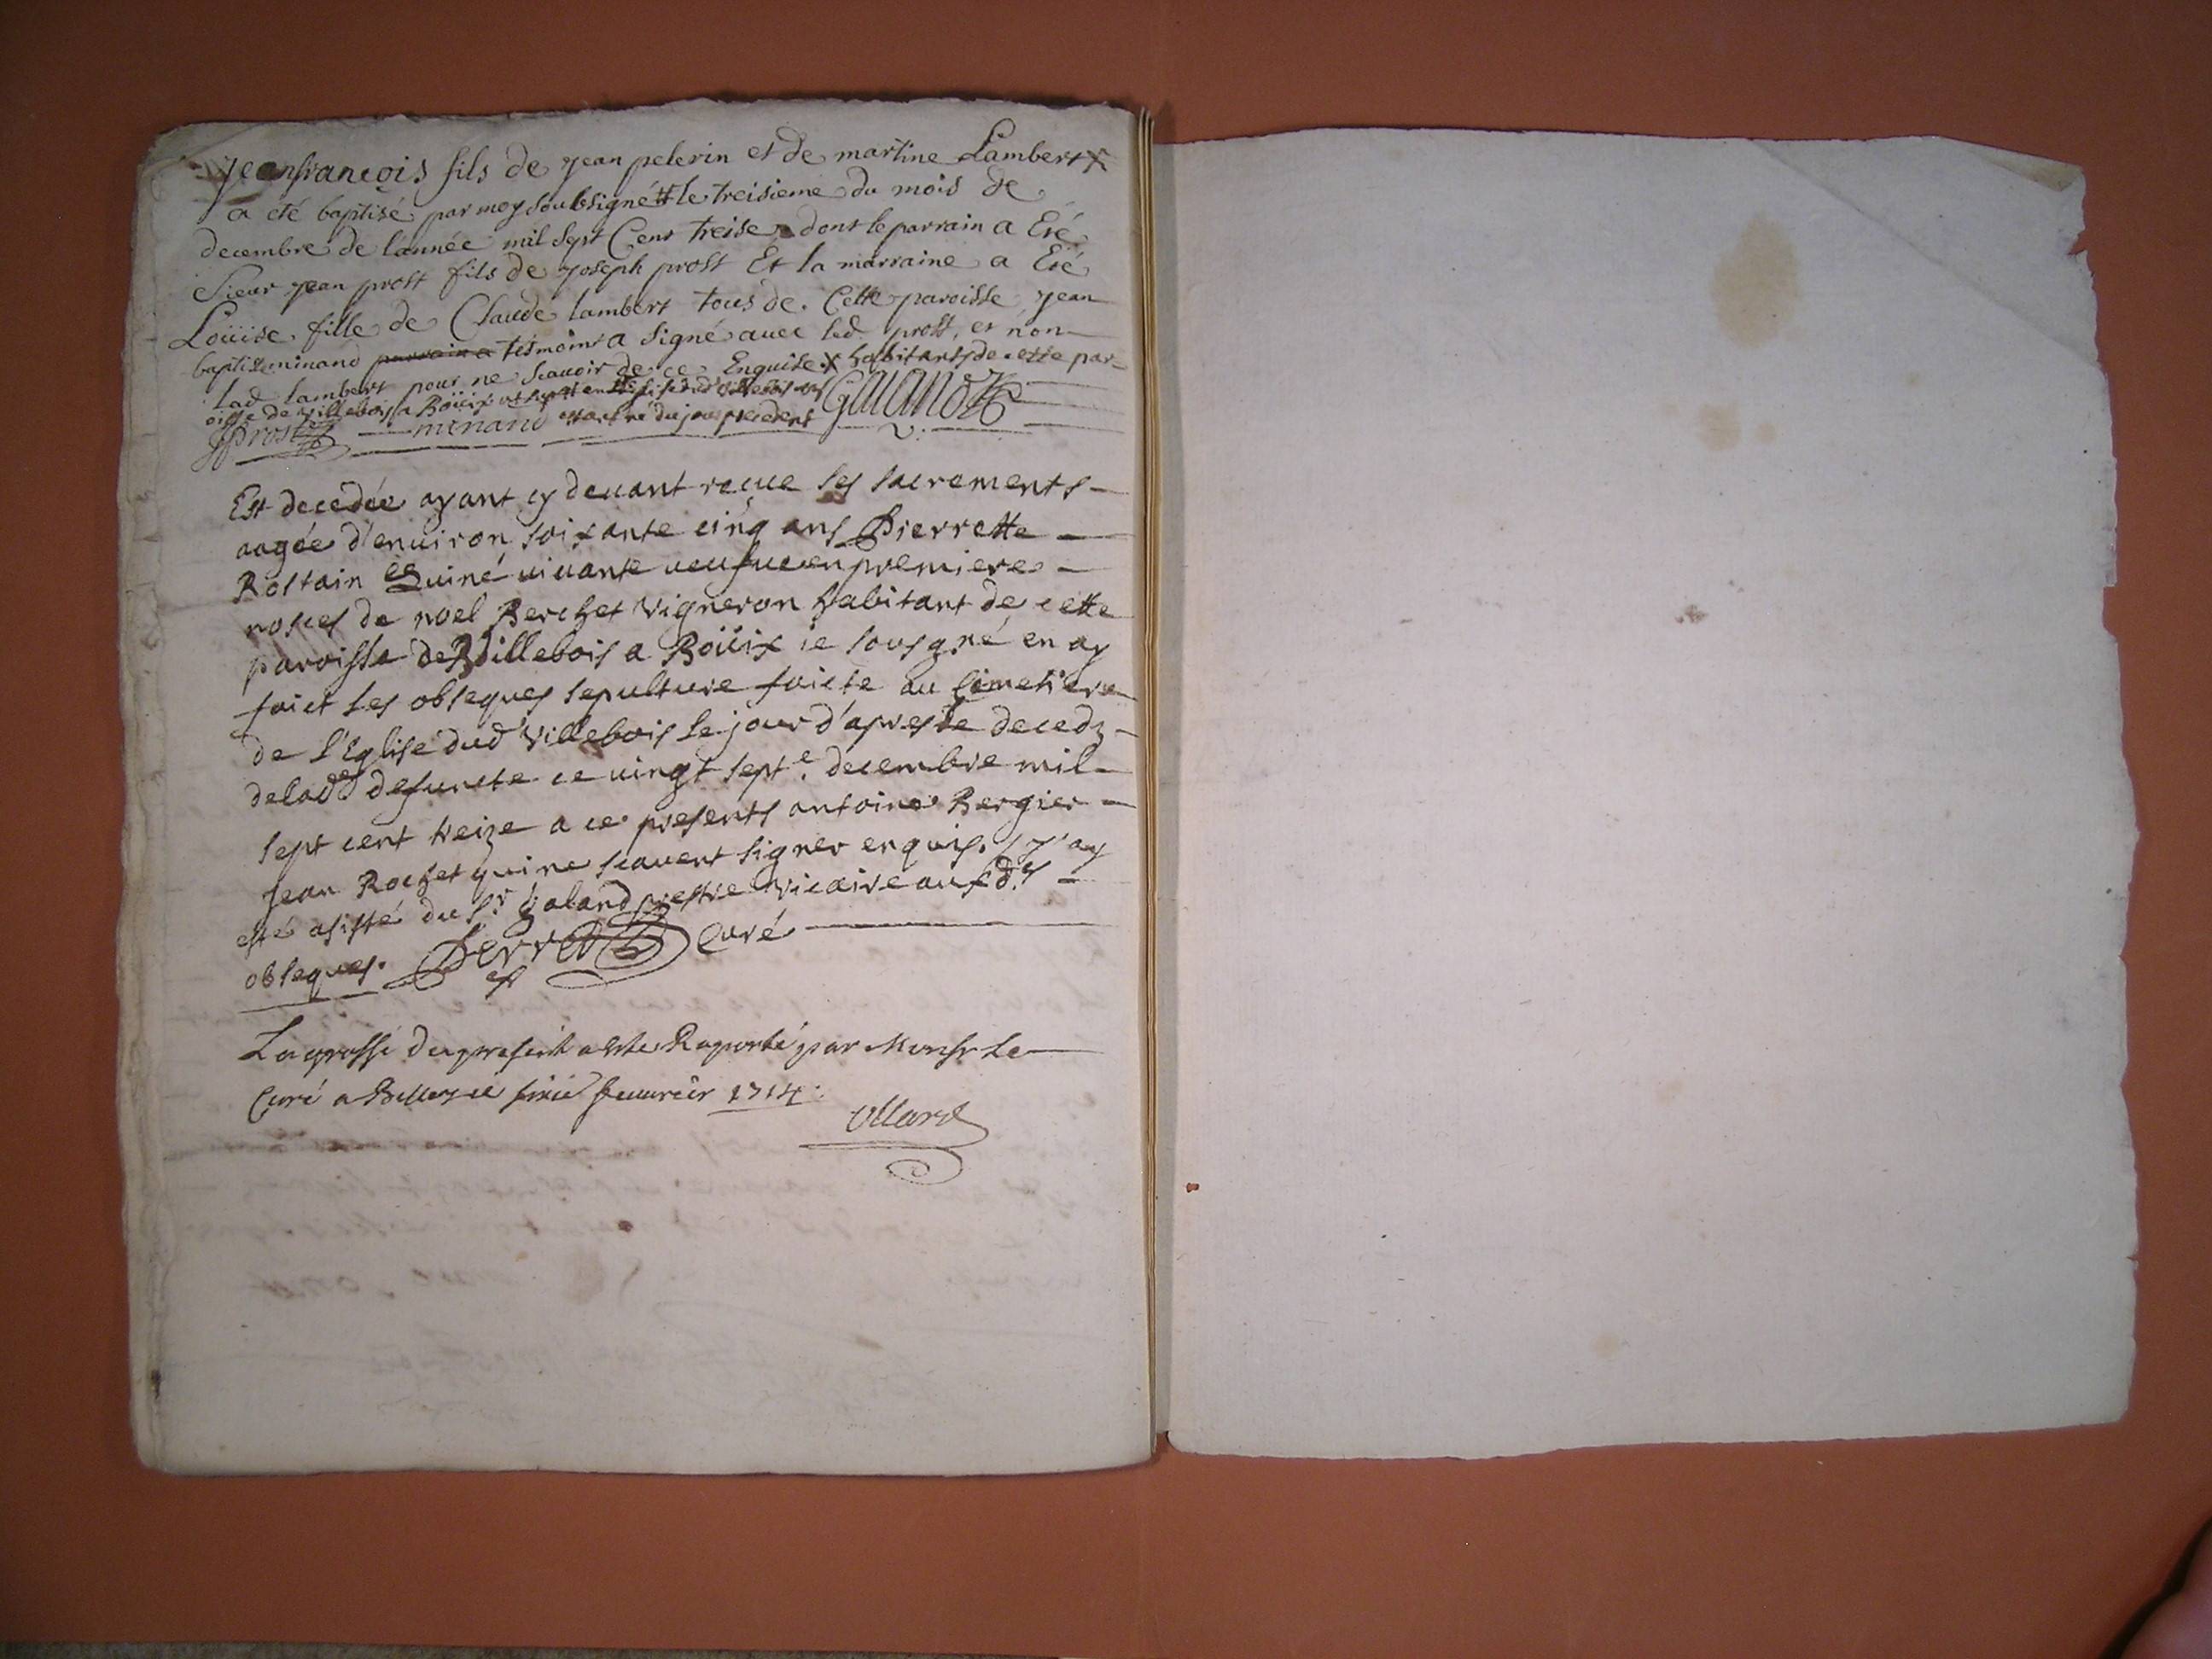 Jeanfrancois fils de jean pelerin et de martine Lambert X
a été baptisé par moy soubsigné # le treisieme du mois de
decembre de l'année mil sept Cent treise dont le parrain a Eté
Sieur jean prost fils de joseph prost Et la marraine a Eté
Loüise fille de Claude lambert tous de Cette paroisse jean
baptiste minand parrain a tesmoint a signé avec led prost, et non
lad lambert pour ne scavoir de ce Enquise X habitants de cette par-
oisse de Villebois a Boüix
JProst minand nè du jour precedent Galand
Est decedée ayant cy devant receue ses sacrements
aagée d'environ soixante cinq ans Pierrette
Rostain vivante veufve en premiere
nosces de noel Berchet vigneron habitant de cette
paroisse de Villebois a Boüix ie sousgné en ay
faict les obseques sepulture faicte au Cimetiere
de l'Eglise dud Villebois le jour d'apres le decedz
de lade defuncte ce vingt septe. decembre mil
sept cent treize a ce presents antoine Bergier
Jean Rochet qui ne scavent signer enquis. j'ay
esté asisté du Sr. Galand prestre vicaire auxd.s
obseques. Perret Curé
La grosse du present a esté Raporté par Monsr Le
Curé a Belley ce fevvrier 1714.